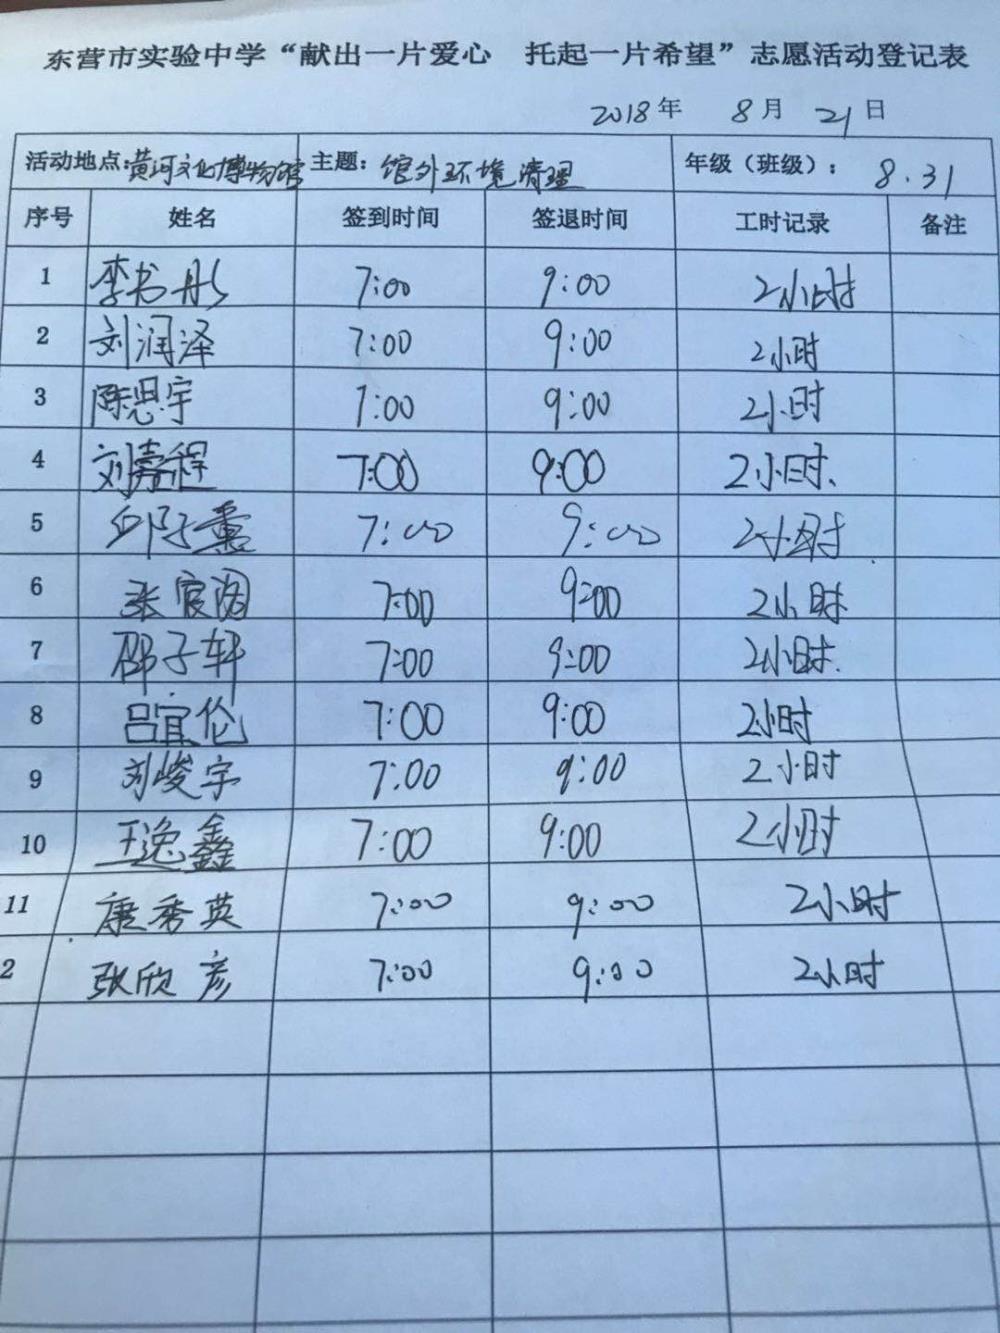 东营市实验中学“献出一片爱心 托起一片希望”志愿活动登记表
2018年 8月 21日
活动地点:黄河文化博物馆 主题: 馆外环境清理 年级(班级): 8.31
序号 姓名 签到时间 签退时间 工时记录 备注
1 李书彤 7:00 9:00 2小时
2 刘润泽 7:00 9:00 2小时
3 陈思宇 7:00 9:00 2小时
4 刘嘉程 7:00 9:00 2小时.
5 邱子薰 7:00 9:00 2小时
6 张宸 7:00 9:00 2小时
7 邵子轩 7:00 9:00 2小时.
8 吕宜伦 7:00 9:00 2小时
9 刘峻宇 7:00 9:00 2小时
10 王逸鑫 7:00 9:00 2小时
11 康秀英 7:00 9:00 2小时
2 张欣彦 7:00 9:00 2小时